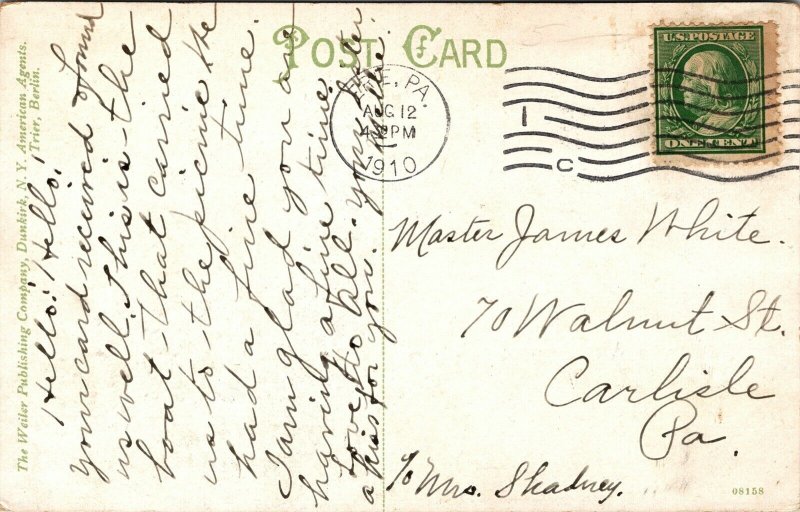 POST CARD
The Weiler Publishing Company, Dunkirk, N. Y. American Agents.
Trier, Berlin.
Hello! Hello!
your card received & found
us well. This is the
boat that carried
us to the picnic. We
had a fine time.
I am glad you are
having a fine time.
Love to all. Your sister
a kiss for you.
ERIE, PA.
AUG 12
4-30PM
1910
1
C
U.S. POSTAGE
ONE CENT
Master James White.
70 Walnut St.
Carlisle
Pa.
℅ Mrs. Skadney.
08158